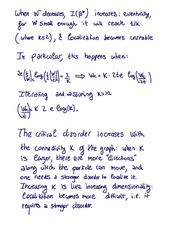 When W decreases, I(β*) increases: eventually,
for W small enough it will reach
(where x=2), & localization becomes unstable
In particular, this happens when:
Iterating and assuming K>>1
K 2 e log(K),
The critical disorder increases with
the connectivity K of the graph: when K
is larger, there are more "directions"
along which the particle can move, and
one needs a stronger disorder to localize it.
Increasing K is like increasing dimensionality:
localization becomes more difficult, i.e. it
requires a stronger disorder.